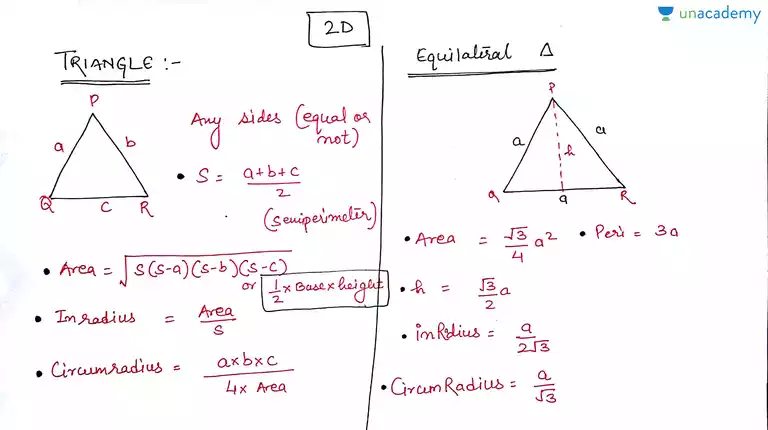 unacademy
2D
TRIANGLE :-
P
a
b
Q
C
R
Any sides (equal or
not)
• S = a+b+c/2
(Semiperimeter)
• Area = √S(S-a)(S-b)(S-c)
or 1/2 × Base × height
• Inradius = Area/S
• Circumradius = a×b×c/4× Area
Equilateral Δ
P
a
a
h
Q
a
R
• Area = √3/4 a² • Peri = 3a
• h = √3/2 a
• inRdius = a/2√3
• CircumRadius = a/√3